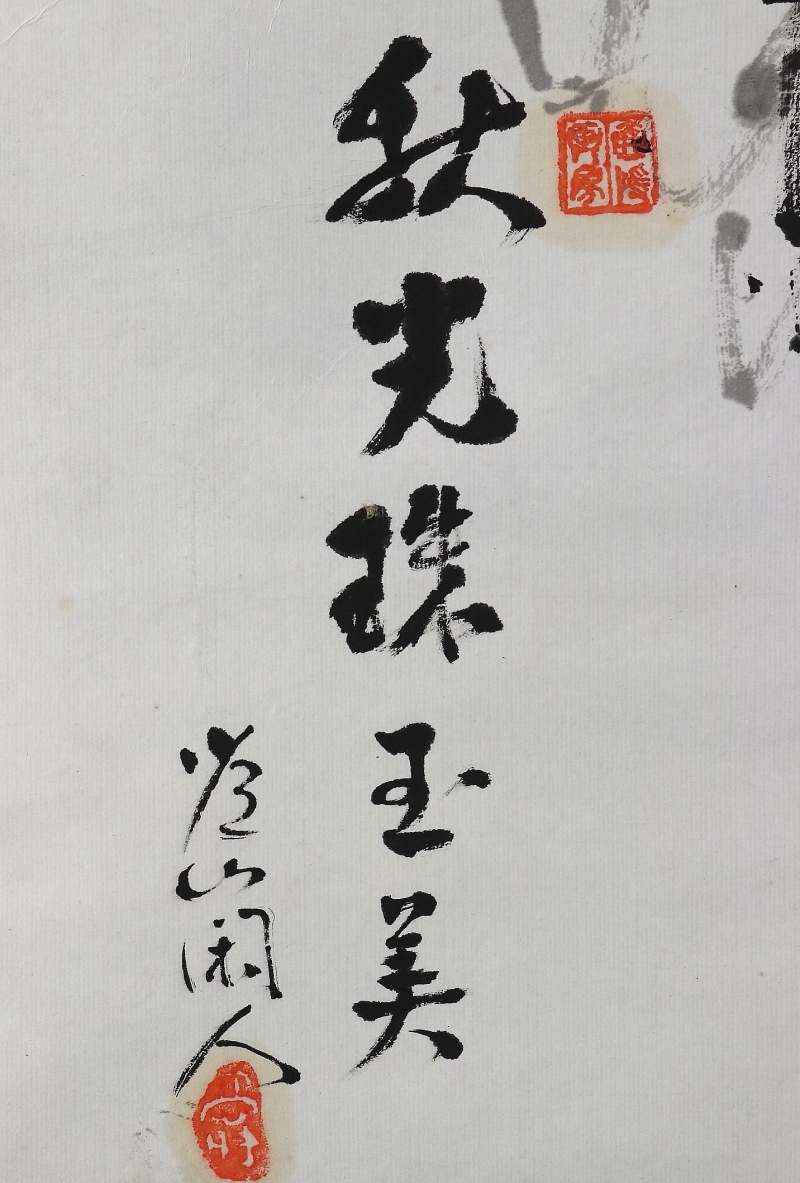 秋光珠玉美
山閑人